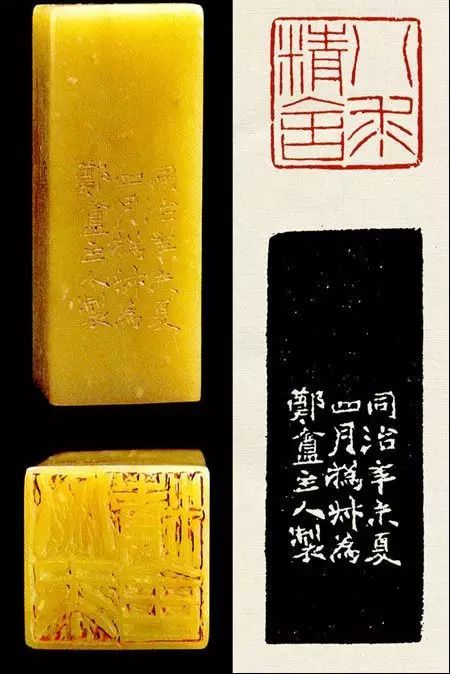 八求
精舍
同治辛未夏
四月撝叔為
鄭盦主人製
同治辛未夏
四月撝叔為
鄭盦主人製